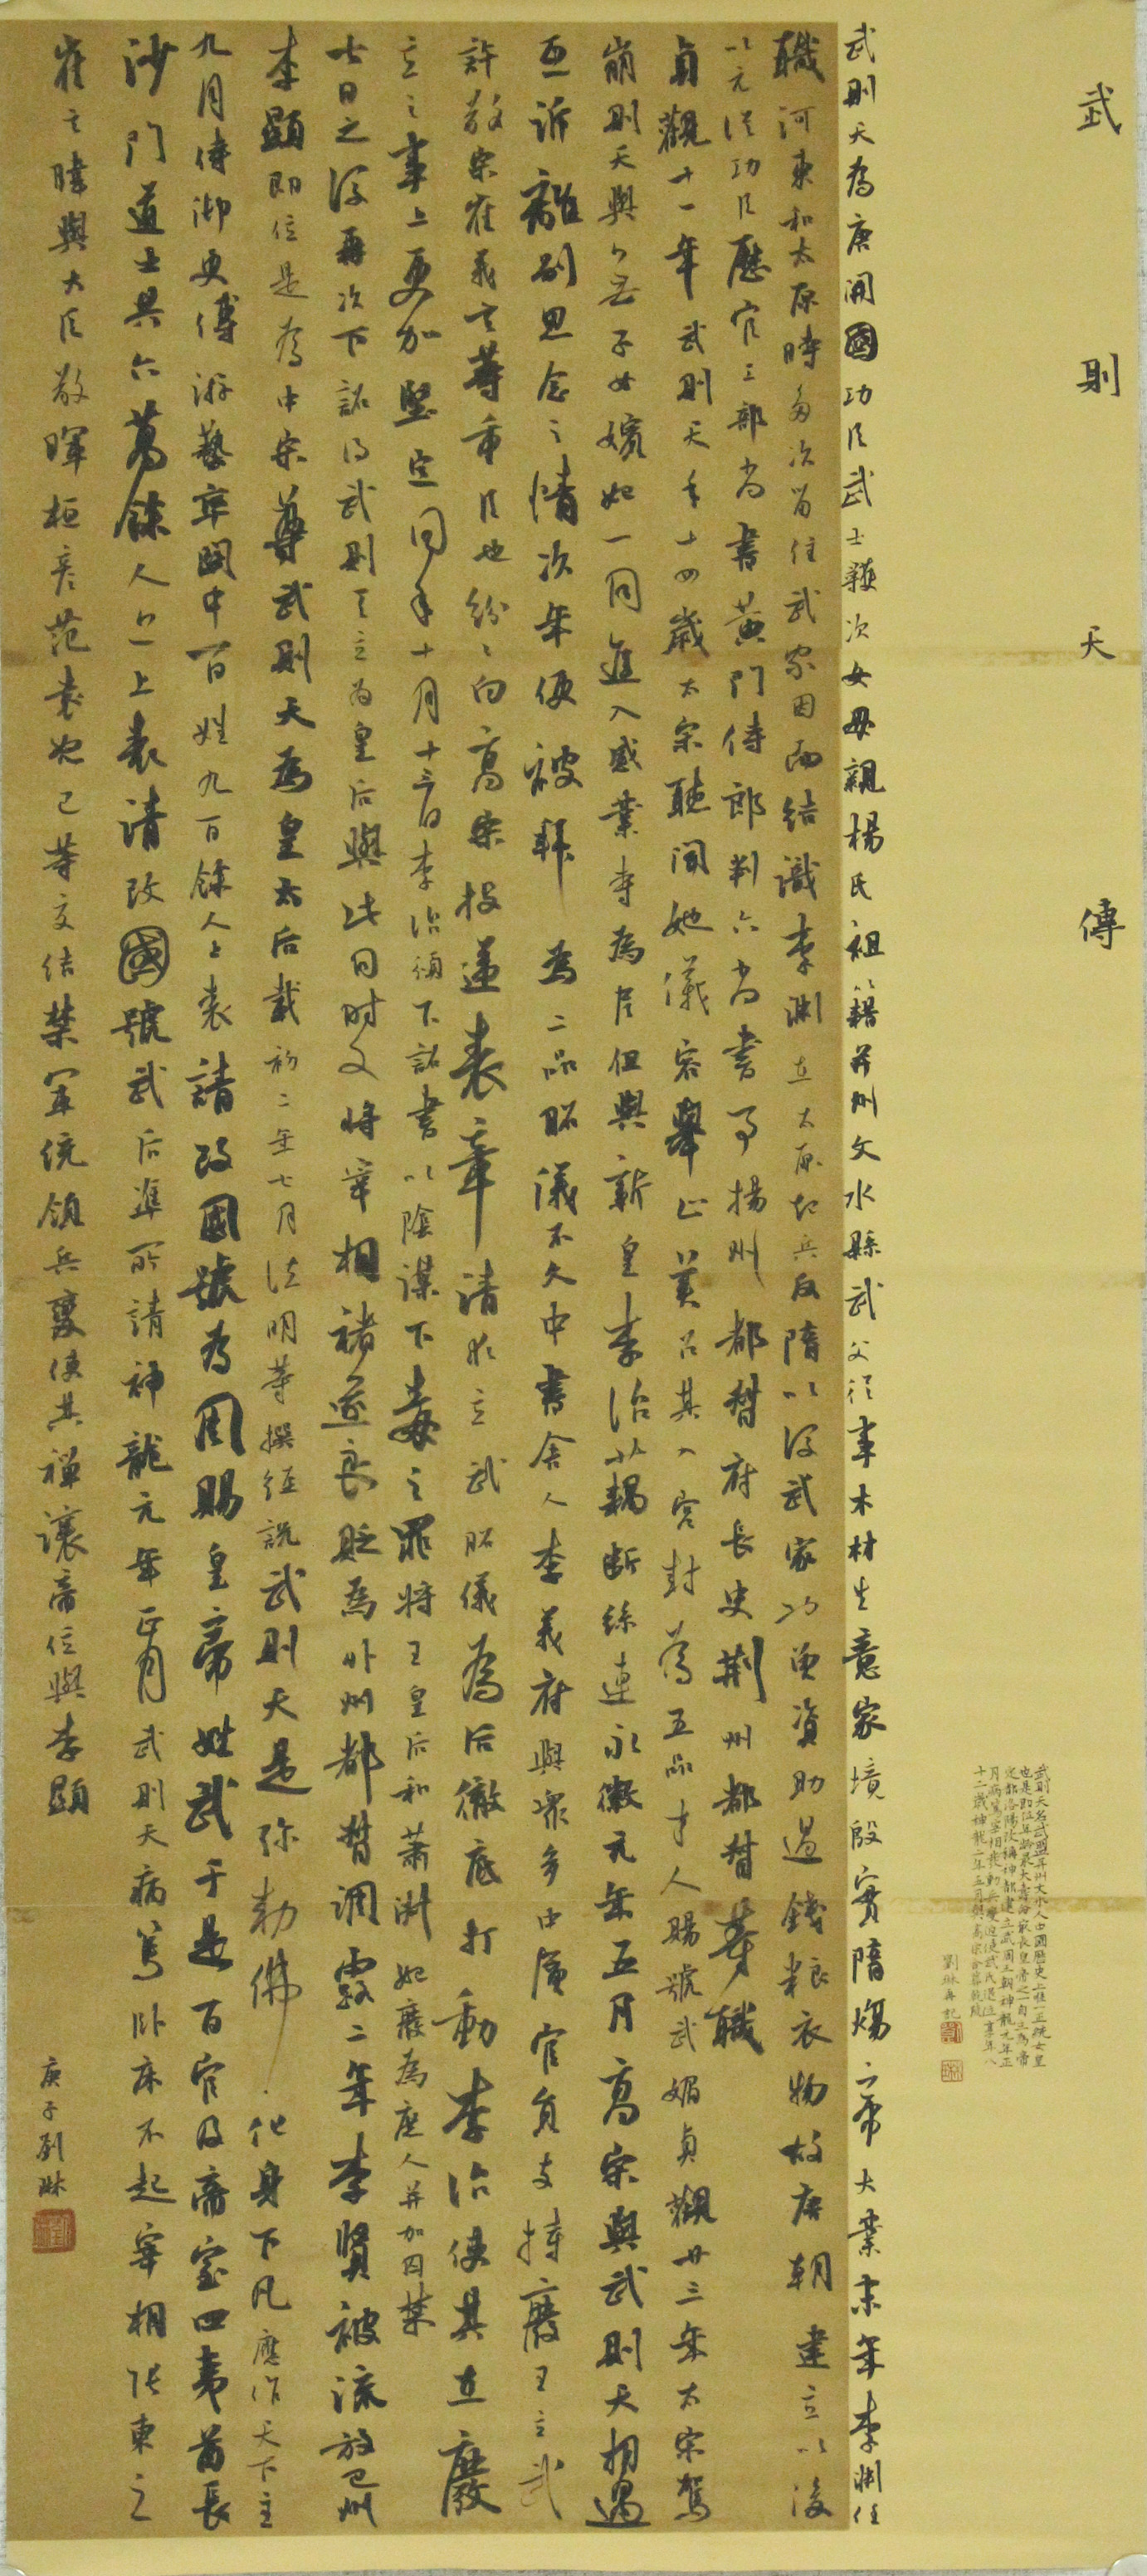 武則天傳
武則天名武曌并州文水人中國歷史上唯一正統女皇
也是即位年齡最大壽命最長皇帝之一自立為帝
定都洛陽改稱神都建立武周王朝神龍元年正
月病篤宰相發動兵變迫使武氏退位享年八
十二歲神龍二年五月與高宗合葬乾陵
劉琳再記
武則天為唐開國功臣武士彠次女母親楊氏祖籍并州文水縣武父從事木材生意家境殷實隋煬帝大業末年李淵任
職河東和太原時多次留住武家因而結識李淵在太原起兵反隋以後武家功曾資助過錢粮衣物故唐朝建立以後
以元從功臣歷官工部尚書黃門侍郎判六尚書事揚州都督府長史荊州都督等職
貞觀十一年武則天年十四歲太宗聽聞她儀容舉止美召其入宮封為五品才人賜號武媚貞觀廿三年太宗駕
崩則天與部分無子女嬪妃一同進入感業寺為尼但與新皇李治藕斷絲連永徽元年五月高宗與武則天相遇
互訴離別思念之情次年便被拜為二品昭儀不久中書舍人李義府與眾多中層官員支持廢王立武
許敬宗崔義玄等重臣也紛紛向高宗投遞表章請求立武昭儀為后徹底打動李治使其在廢
立之事上更加堅定同年十月十三日李治頒下詔書以陰謀下毒之罪將王皇后和蕭淑妃廢為庶人并加囚禁
七日之後再次下詔將武則天立為皇后與此同時又將宰相褚遂良貶為外州都督調露二年李賢被流放巴州
李顯即位是為中宗尊武則天為皇太后載初二年七月法明等撰經說武則天是弥勒佛化身下凡應作天下主
九月侍御史傅游藝率關中百姓九百餘人上表請改國號為周賜皇帝姓武于是百官及帝室四夷酋長
沙門道士共六萬餘人亦上表請改國號武后準所請神龍元年正月武則天病篤臥床不起宰相張柬之
崔玄暐與大臣敬暉桓彥范袁恕己等交結禁軍統領兵變使其禪讓帝位與李顯
庚子劉琳